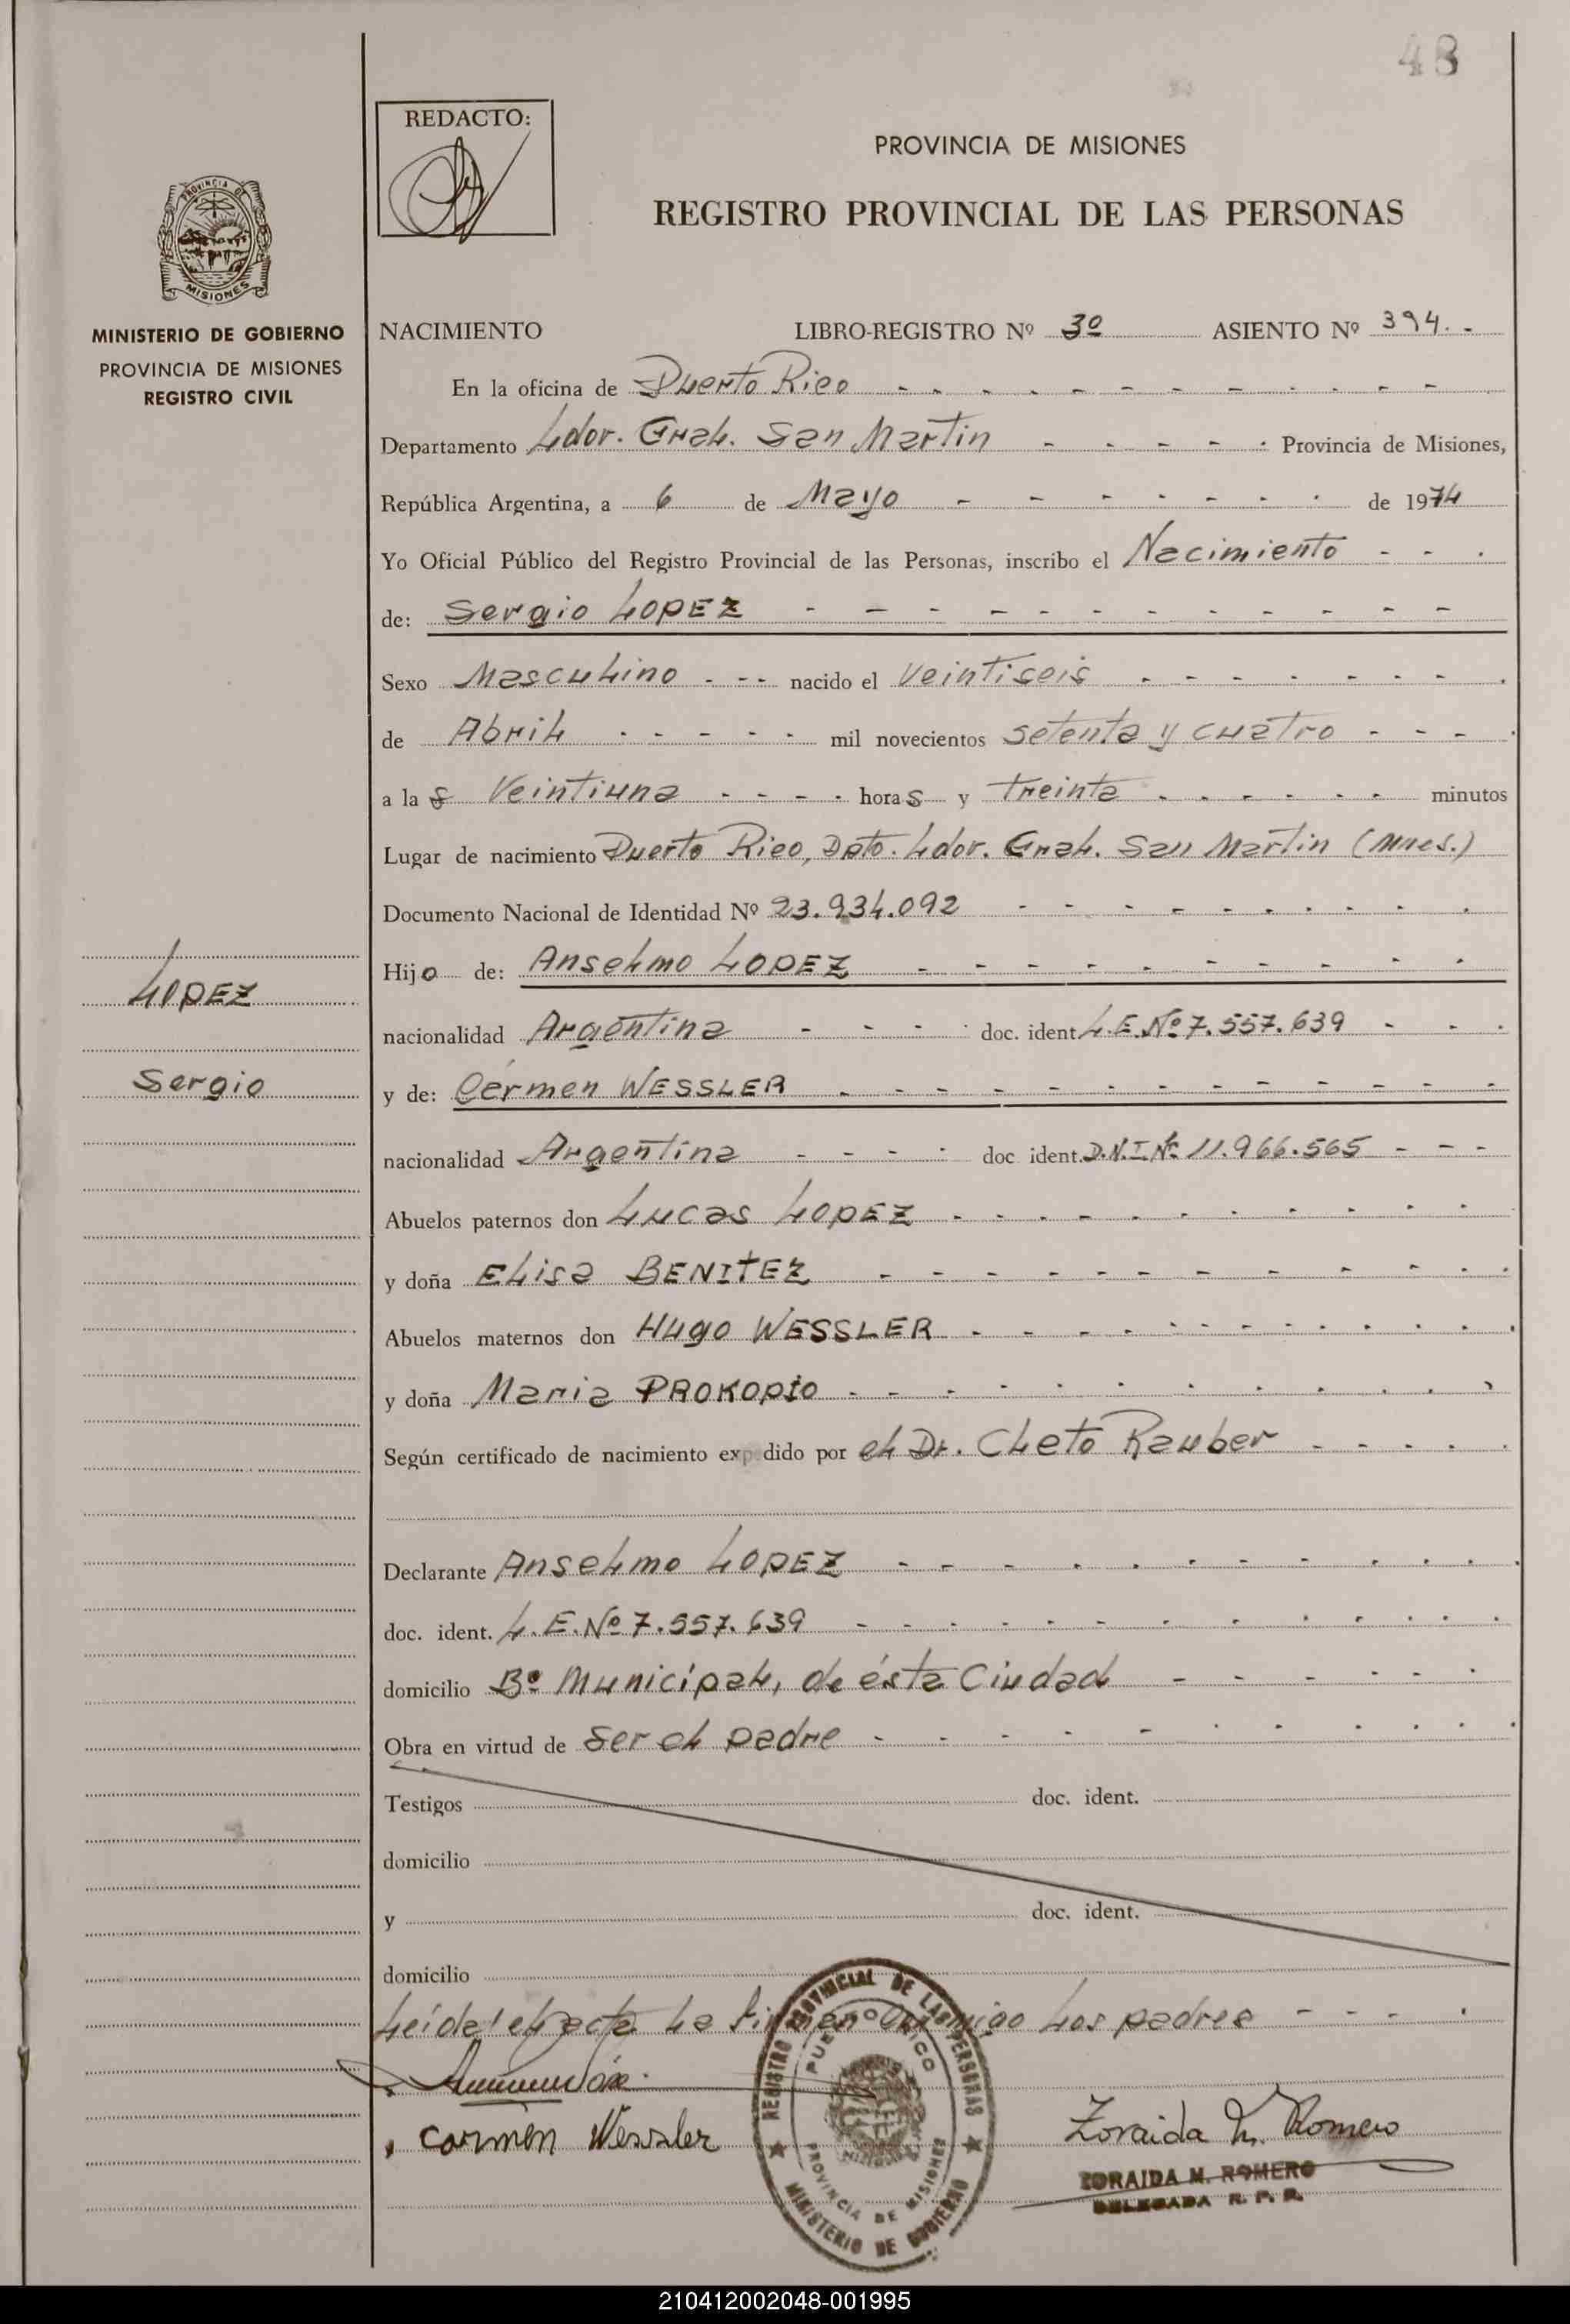 48
REDACTO:
PROVINCIA DE MISIONES
REGISTRO PROVINCIAL DE LAS PERSONAS
PROVINCIA DE
MISIONES
MINISTERIO DE GOBIERNO
PROVINCIA DE MISIONES
REGISTRO CIVIL
NACIMIENTO LIBRO-REGISTRO Nº 3º ASIENTO Nº 394.-
En la oficina de Puerto Rico
Departamento Ldor. Gral. San Martin Provincia de Misiones,
República Argentina, a 6 de Mayo de 1974
Yo Oficial Público del Registro Provincial de las Personas, inscribo el Nacimiento
de: Sergio LOPEZ
Sexo Masculino nacido el Veintiseis
de Abril mil novecientos setenta y cuatro
a las Veintiuna horas y treinta minutos
Lugar de nacimiento Puerto Rico, Dpto. Ldor. Gral. San Martin (Mnes.)
Documento Nacional de Identidad Nº 23.934.092
Hijo de: Anselmo LOPEZ
nacionalidad Argentina doc. ident. L.E. Nº 7.557.639
y de: Cármen WESSLER
nacionalidad Argentina doc ident. D.N.I. Nº 11.966.565
Abuelos paternos don Lucas LOPEZ
y doña Elisa BENITEZ
Abuelos maternos don Hugo WESSLER
y doña Maria PROKOPIO
Según certificado de nacimiento expedido por el Dr. Cleto Rauber
Declarante Anselmo LOPEZ
doc. ident. L.E. Nº 7.557.639
domicilio Bº Municipal, de ésta Ciudad
Obra en virtud de ser el padre
Testigos doc. ident.
domicilio
y doc. ident.
domicilio
Leída el acta la firman conmigo los padres
Carmen Wessler
Zoraida M. Romero
ZORAIDA M. ROMERO
DELEGADA R. P. P.
REGISTRO PROVINCIAL DE LAS PERSONAS
PUERTO RICO
PROVINCIA DE MISIONES
MINISTERIO DE GOBIERNO
LOPEZ
Sergio
210412002048-001995